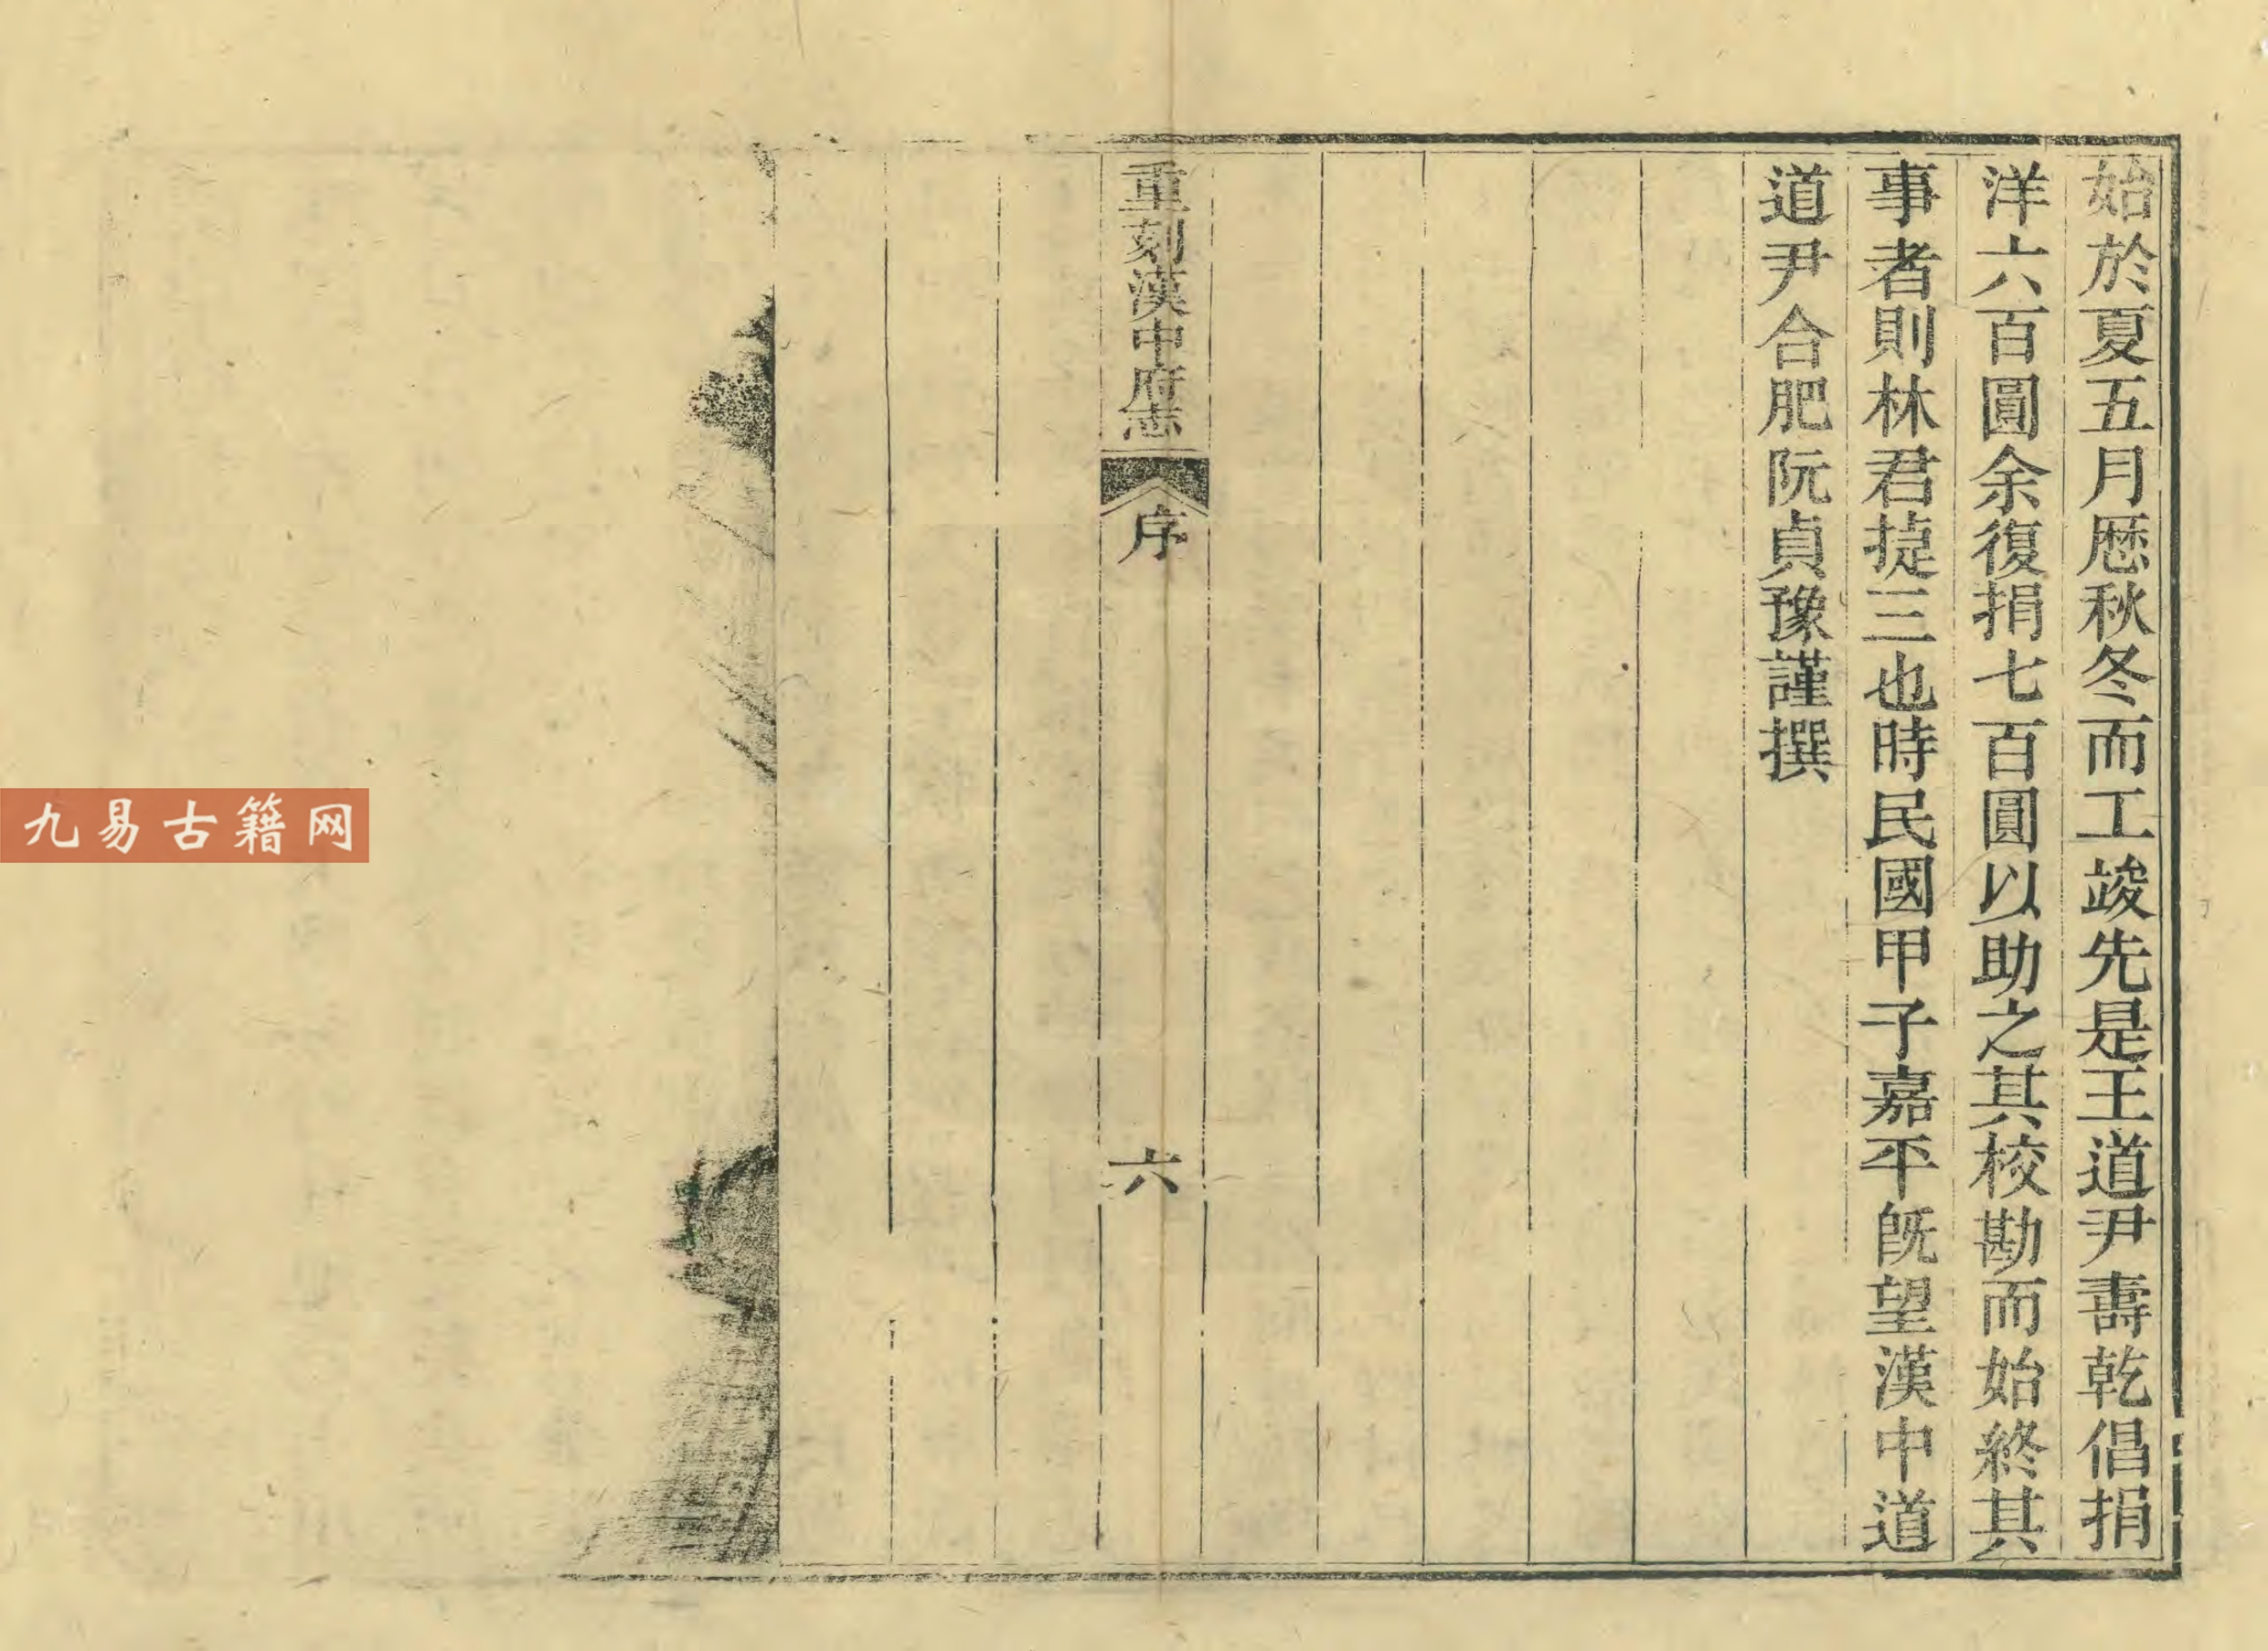 始於夏五月厯秋冬而工竣先是王道尹壽乾倡捐
洋六百圓余復捐七百圓以助之其校勘而始終其
事者則林君㨗三也時民國甲子嘉平旣望漢中道
道尹合肥阮貞豫謹撰
重刻漢中府志 序 六
九易古籍网